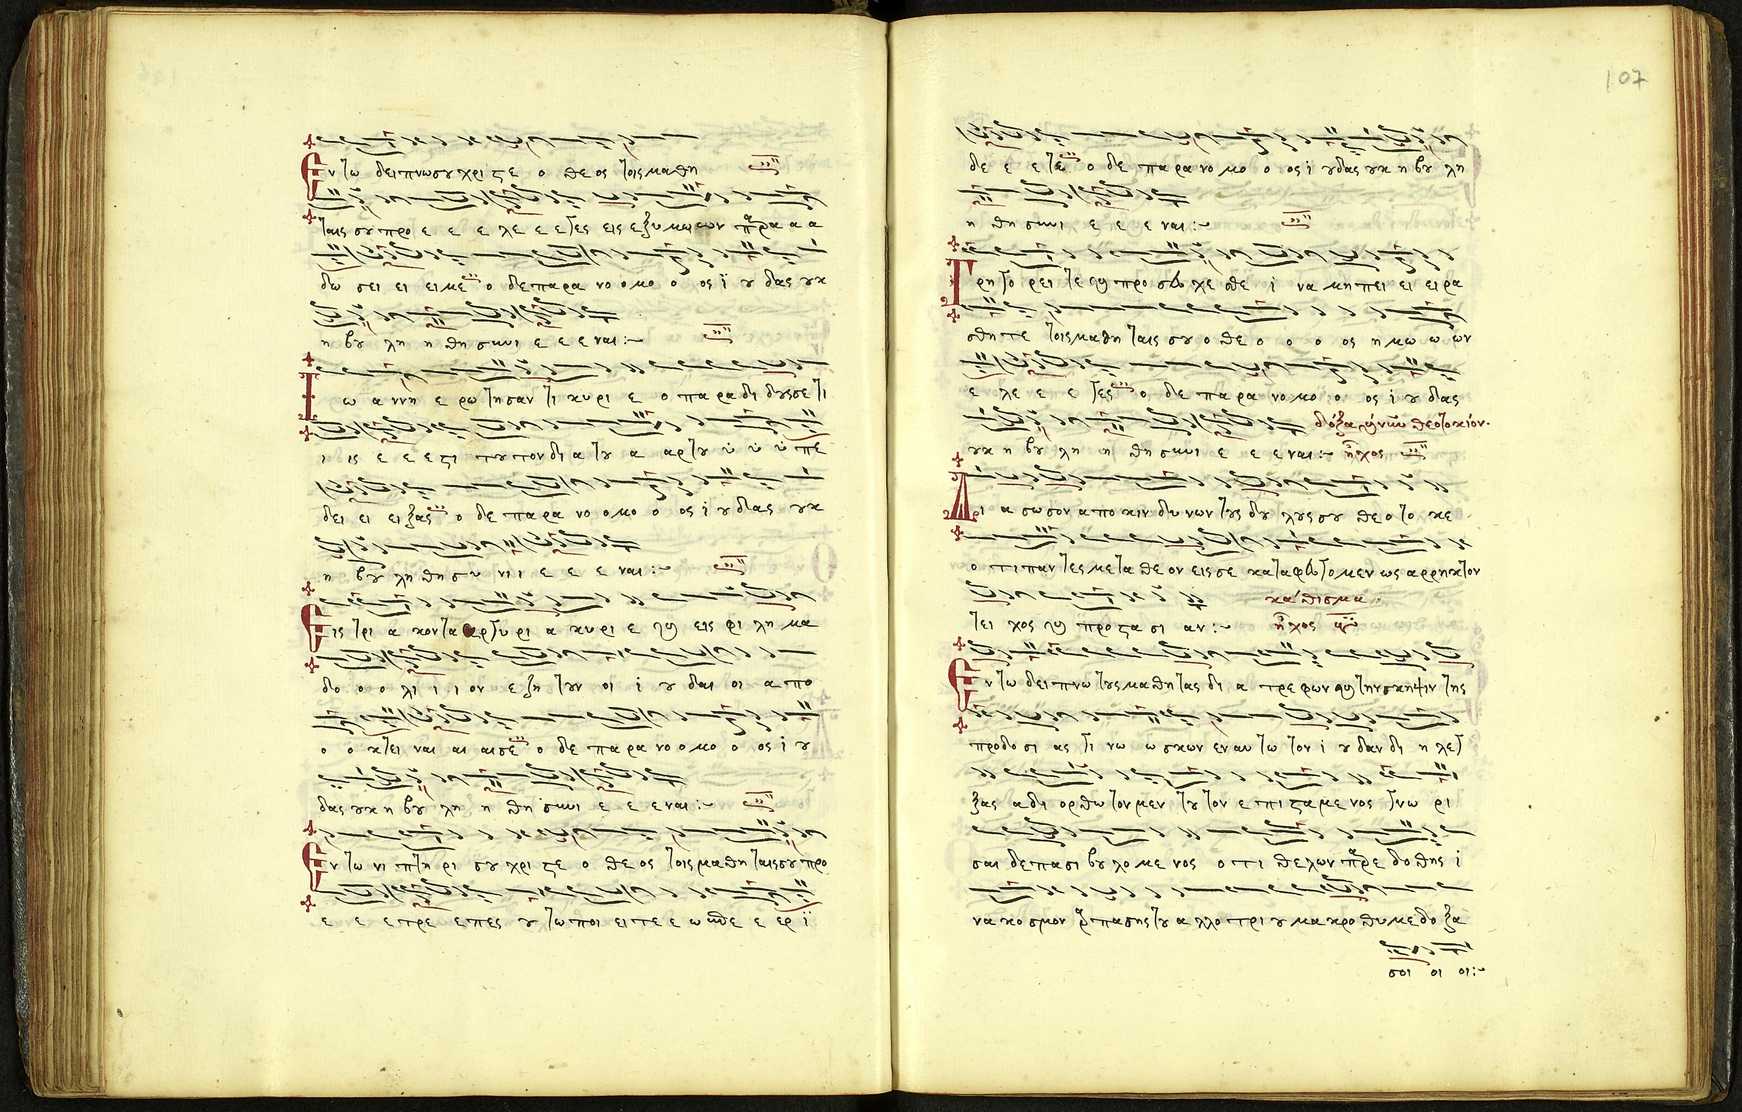 Εν τω δειπνωσουχριστε ο θεος τοιςμαθη
ταιςσουπρο ε ε ε λε ε ε γες εις εξυμωεων παρα α α
δω σει ει ειμε ο δεπαρα νο ο μο ο οσ ϊ ου δας ουκ
η βου λη η θη συνι ε ε ε ναι :~
Ι ω α ννη ε ρω τησαν τι κυρι ε ο παρα δι δουςσε τι
ι ις ε ε εστι τουτον δι α του α αρτου υ υ υ πε
δει ει ει ξας ο δε παρα νο ο μο ο οσ ι ου δας ουκ
η βου λη θη συ νι ι ε ε ε ναι :~
Εις τρι α κοντα αργυ ρι α κυρι ε και εις φι λη μα
δο ο ο λι ι ι ον εζη τουν οι ι ου δαι οι α πο
ο ο κτει ναι αι αισε ο δε παρα νο ο μο ο οσ ι ου
δας ουκ η βου λη η θη συνι ε ε ε ναι :~
Εν τω νι πτη ρι σου χρι στε ο θε ος τοιςμαθη ταιςσουπρο
ε ε ετρε επες ου τωποι ειτε ε ω ε ερ ϊ
107
δε ε ε τε ο δε παρανο μο ο οσ ι ουδας ουκ η βου λη
η θη συνι ε ε ε ναι :~
Γρηγο ρει τε και προσευχε σθε ι να μηπει ει ειρα
σθητε τοιςμαθη ταις σου ο θε ο ο ο ος η μω ω ων
ε λε ε ε γες ο δε παρανομο ο οσ ι ου δας
δόξα και νῦν θεοτοκίον.
ουκ η βου λη η θη συνι ε ε ε ναι :~ ἦχος
Δι α σωσον απο κιν δυ νων τους δου λουςσου θε ο το κε
ο τι παν τες μετα θε ον εις σε καταφευγομεν ως αρρηκτον
κάθισμα
τει χος και προστασι αν :~ ἦχος
Εν τω δειπνω τους μαθη τας δι α τρεφων και τηνσκηψιν της
προδοσι ας γι νω ω σκων εν αυ τω τον ι ου δαν δι η λεγ
ξας αδι ορθω τον μεν του τον ε πι σταμενος γνω ρι
σαι δεπασι βουλομε νος ο τι θελων παρε δοθης ι
να κοσμον αρπασηςτου α λλο τρι ου μα κροθυμεδο ξα
σοι οι οι :~